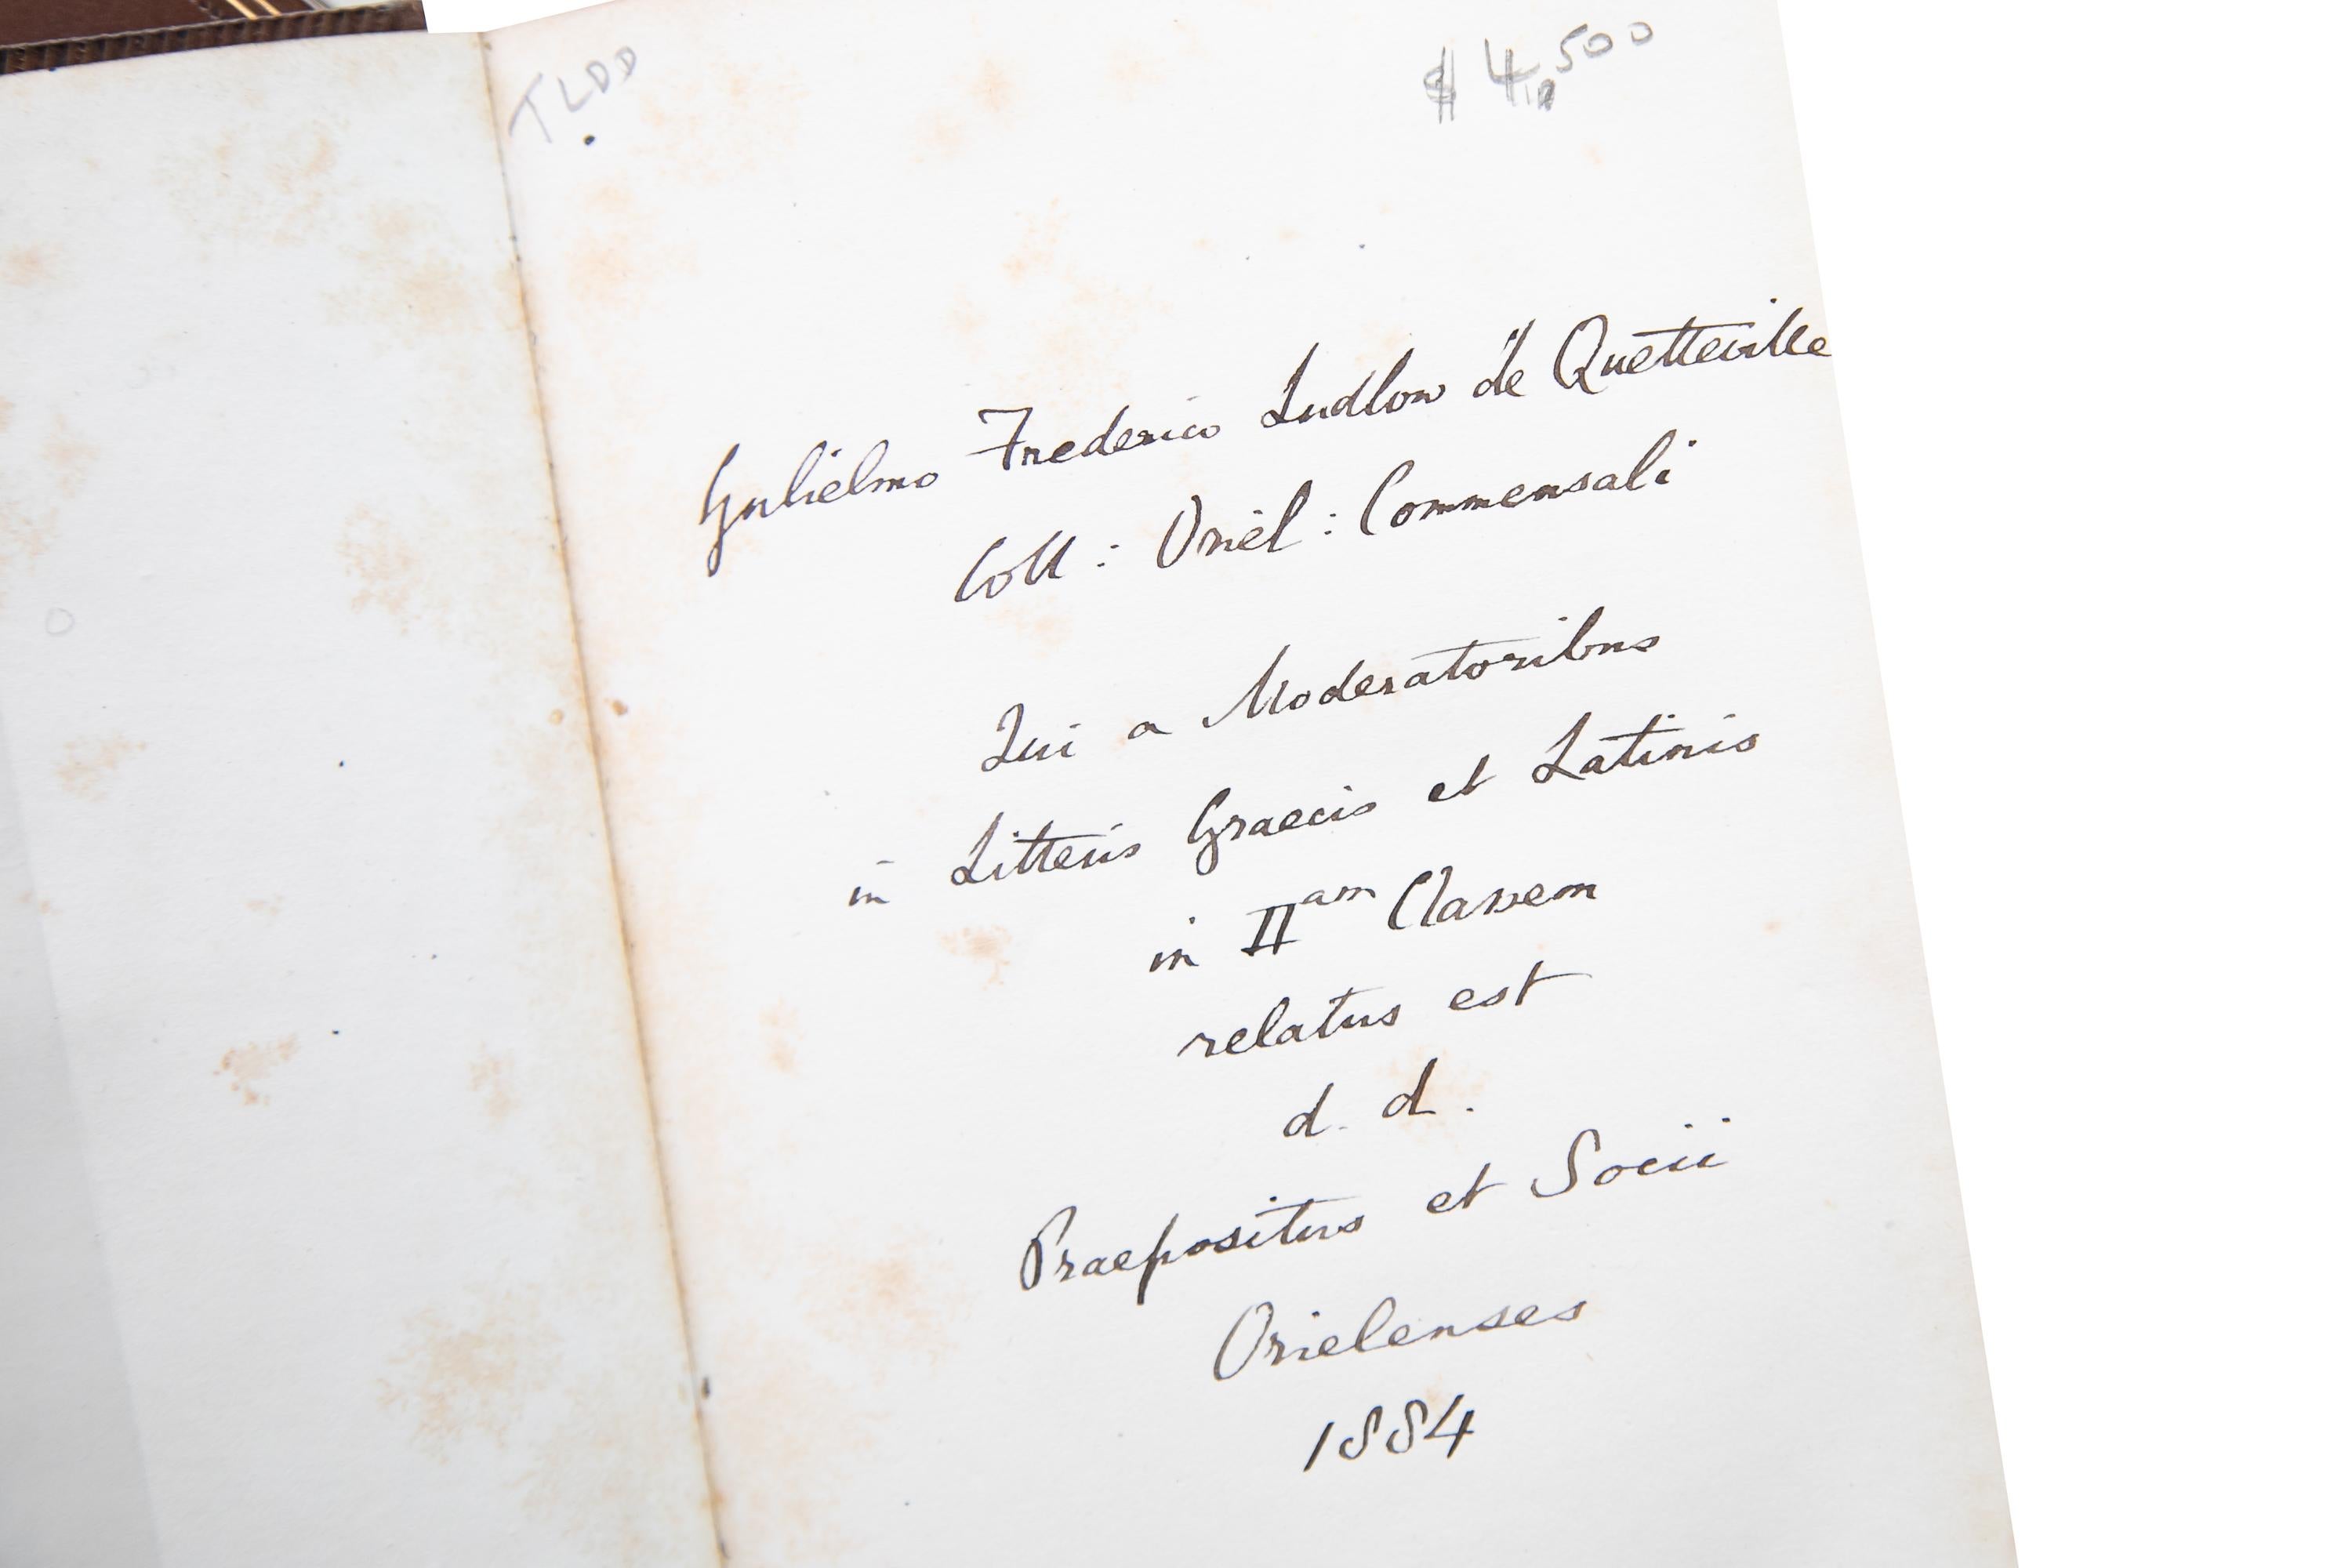 TLDD
$ 4,500
Gulielmo Frederico Ludlow de Quetteville
Coll : Oriel : Commensali
Qui a Moderatoribus
in Litteris Graecis et Latinis
in IIam Classem
relatus est
d. d.
Praepositus et Socii
Orielenses
1884